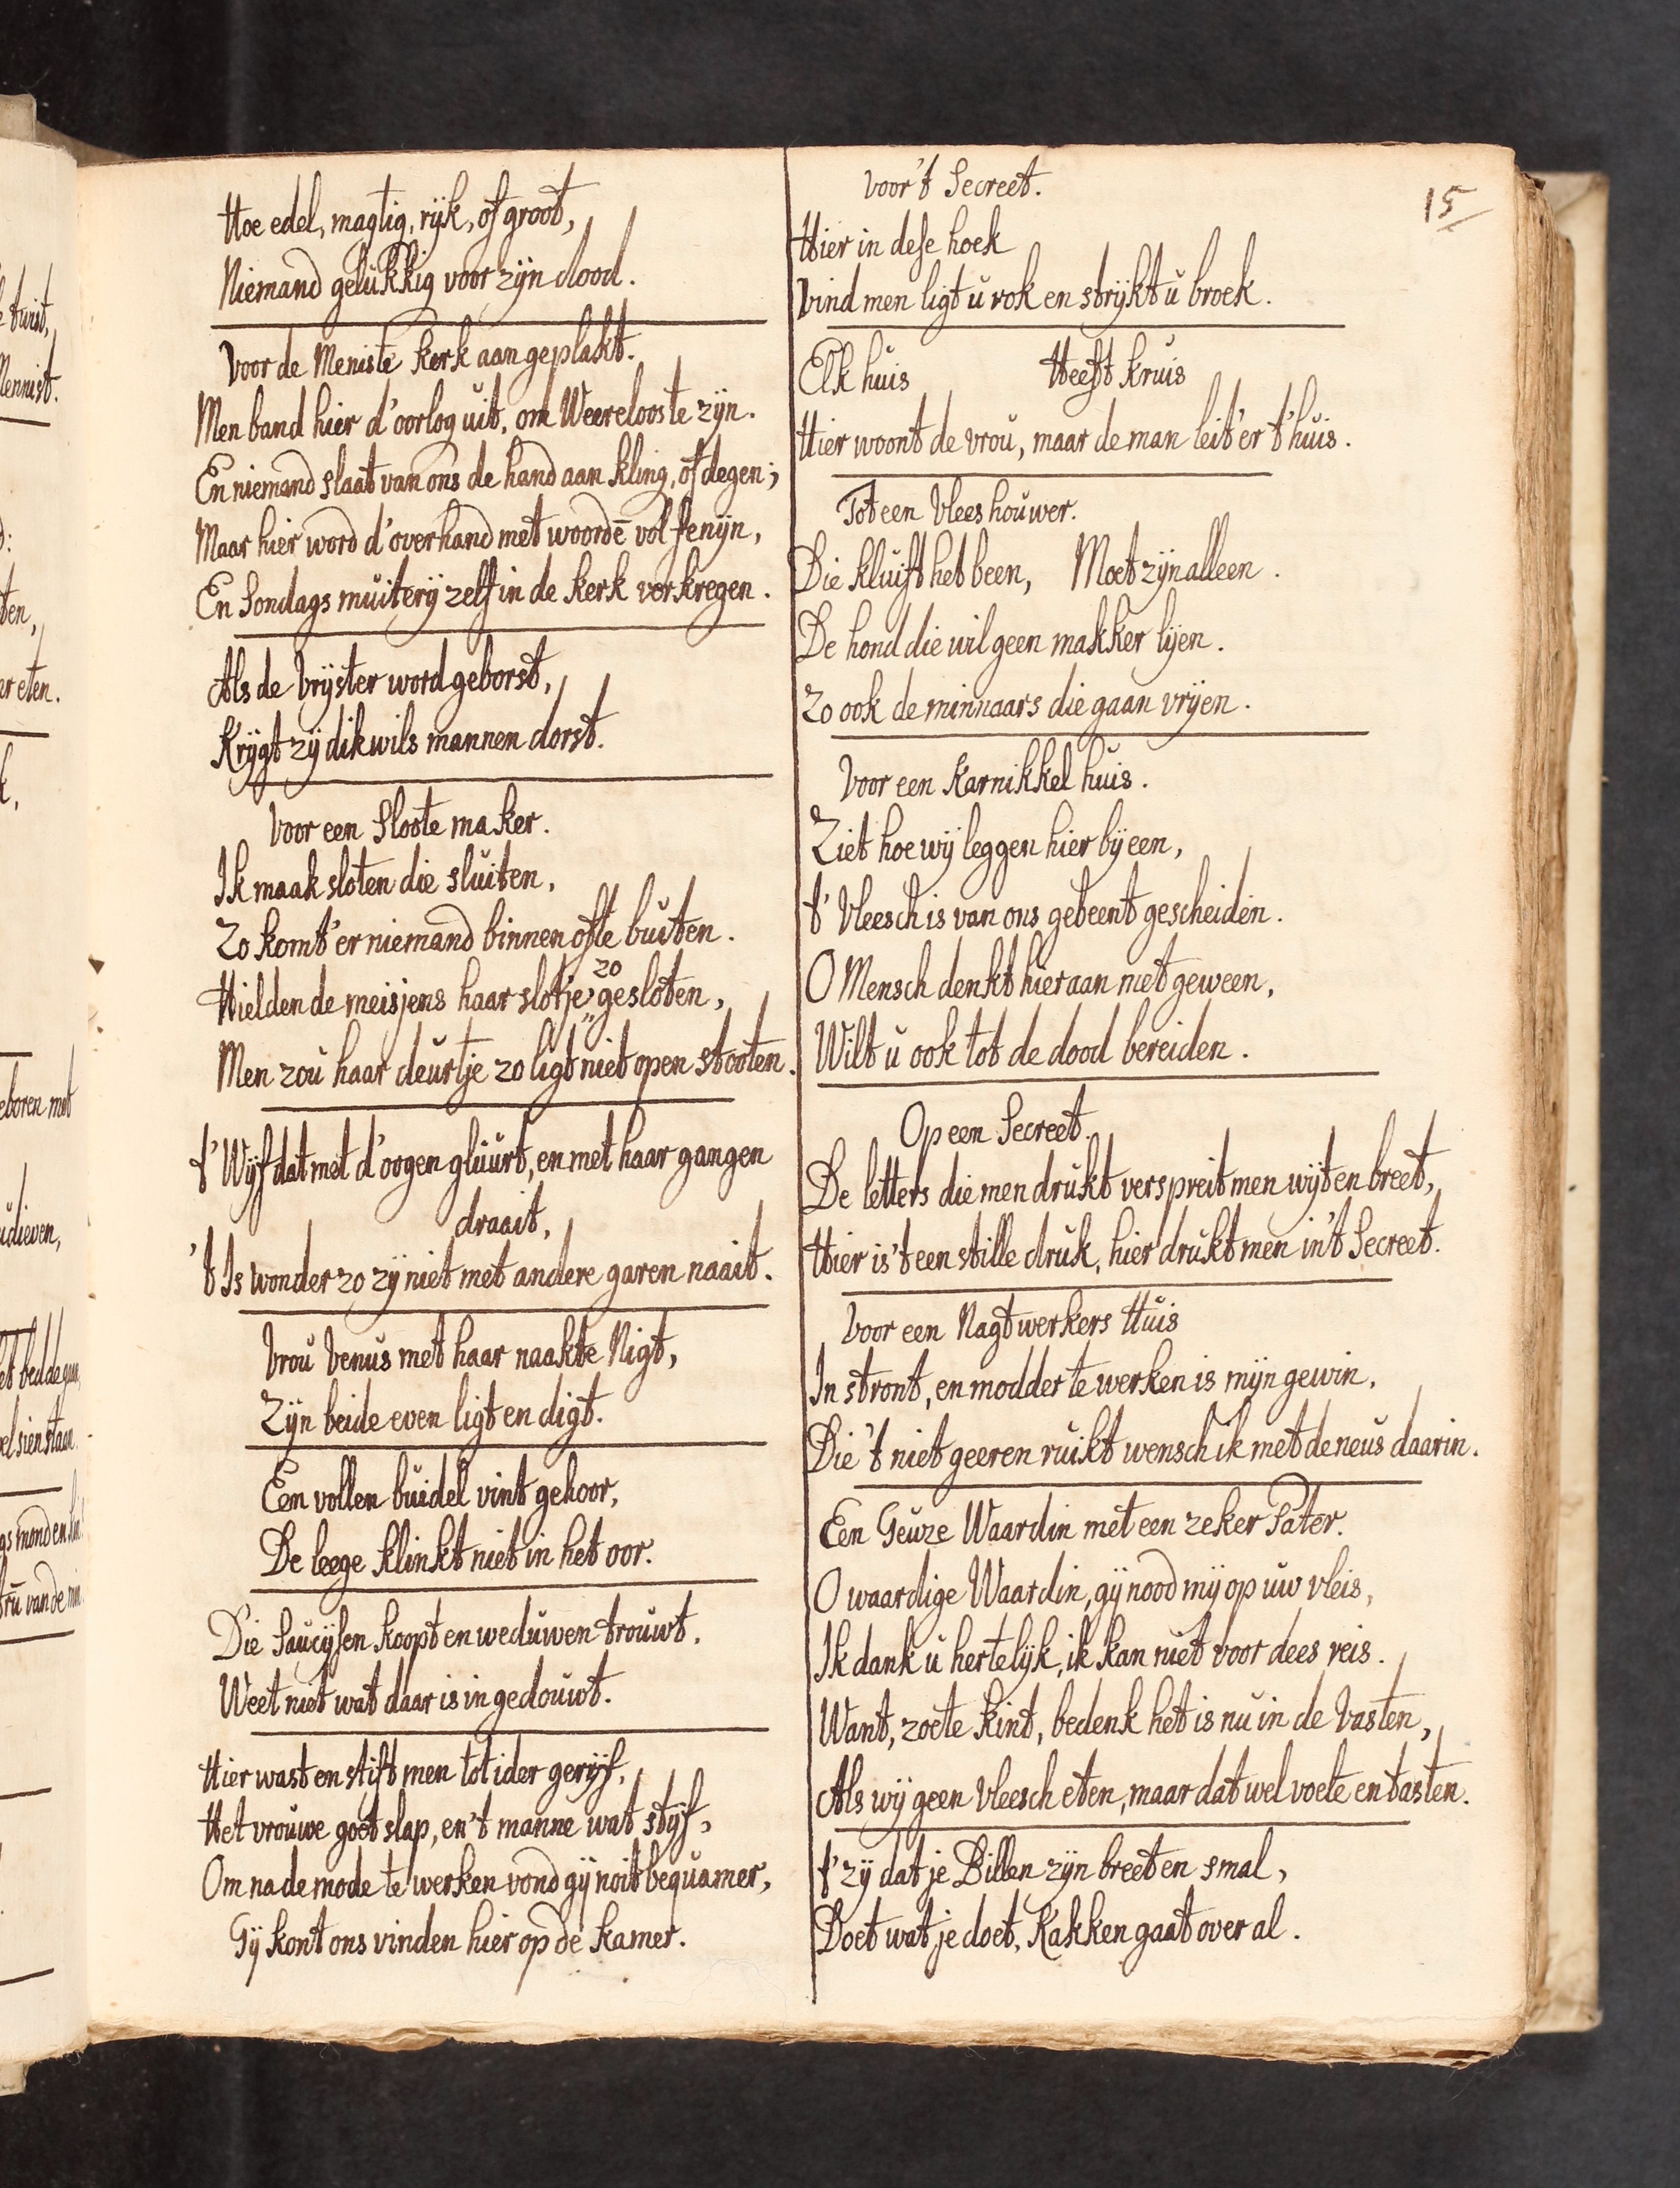 Hoe edel, magtig, rijk, of groot,
Niemand gelukkig voor zijn dood.
Voor de Meniste Kerk aangeplakt.
Men band hier d'oorlog uit, om Weereloos te zijn.
En niemand slaat van ons de hand aan kling, of degen;
Maar hier word d'overhand met woordē vol fenijn,
En Sondags muiterij zelf in de kerk verkregen.
Als de Vrijster word geborst,
Krijgt zij dikwils mannen dorst.
Voor een Slootemaker.
Ik maak sloten die sluiten,
Zo komt'er niemand binnen ofte buiten.
Hielden de meisjens haar slotje zo gesloten,
Men zou haar deurtje zo ligt niet open stooten.
t'Wijf dat met d'oogen gluurt, en met haar gangen
draait,
't Is wonder zo zij niet met andere garen naait.
Vrou Venus met haar naakte Nigt,
Zijn beide even ligt en digt.
Een vollen buidel vint gehoor,
De leege klinkt niet in het oor.
Die Saucijsen koopt en weduwen trouwt,
Weet niet wat daar is in gedouwt.
Hier wast en stijft men tot ider gerijf,
Het vrouwe goet slap, en't manne wat stijf,
Om na de mode te werken vond gij noit bequamer,
Gij kont ons vinden hier op de kamer.
15
Voor't Secreet.
Hier in dese hoek
Vind men ligt u rok en strijkt u broek.
Elk huis Heeft kruis
Hier woont de vrou, maar de man leit'er t'huis.
Tot een Vleeshouwer.
Die kluift het been, Moet zijn alleen.
De hond die wil geen makker lijen.
Zo ook de minnaars die gaan vrijen.
Voor een Karnikkel huis.
Ziet hoe wij leggen hier bijeen,
t'Vleesch is van ons gebeent gescheiden.
O Mensch denkt hier aan met geween,
Wilt u ook tot de dood bereiden.
Op een Secreet.
De letters die men drukt verspreit men wijt en breet,
Hier is't een stille druk, hier drukt men in't Secreet.
Voor een Nagtwerkers Huis
In stront, en modder te werken is mijn gewin,
Die 't niet geeren ruikt wensch ik met de neus daarin.
Een Geuze Waardin met een zeker Pater.
O waardige Waardin, gij nood mij op uw vleis,
Ik dank u hertelijk, ik kan niet voor dees reis.
Want, zoete kint, bedenk het is nu in de Vasten,
Als wij geen Vleesch eten, maar dat wel voele en tasten.
t'zij dat je Billen zijn breet en smal,
Doet wat je doet, Kakken gaat over al.